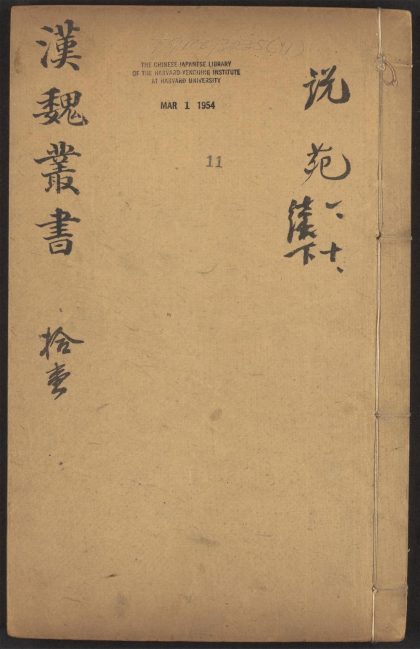 说苑
一、十、
下
THE CHINESE-JAPANESE LIBRARY
OF THE HARVARD-YENCHING INSTITUTE
AT HARVARD UNIVERSITY
MAR 1 1954
11
漢魏叢書 拾壹